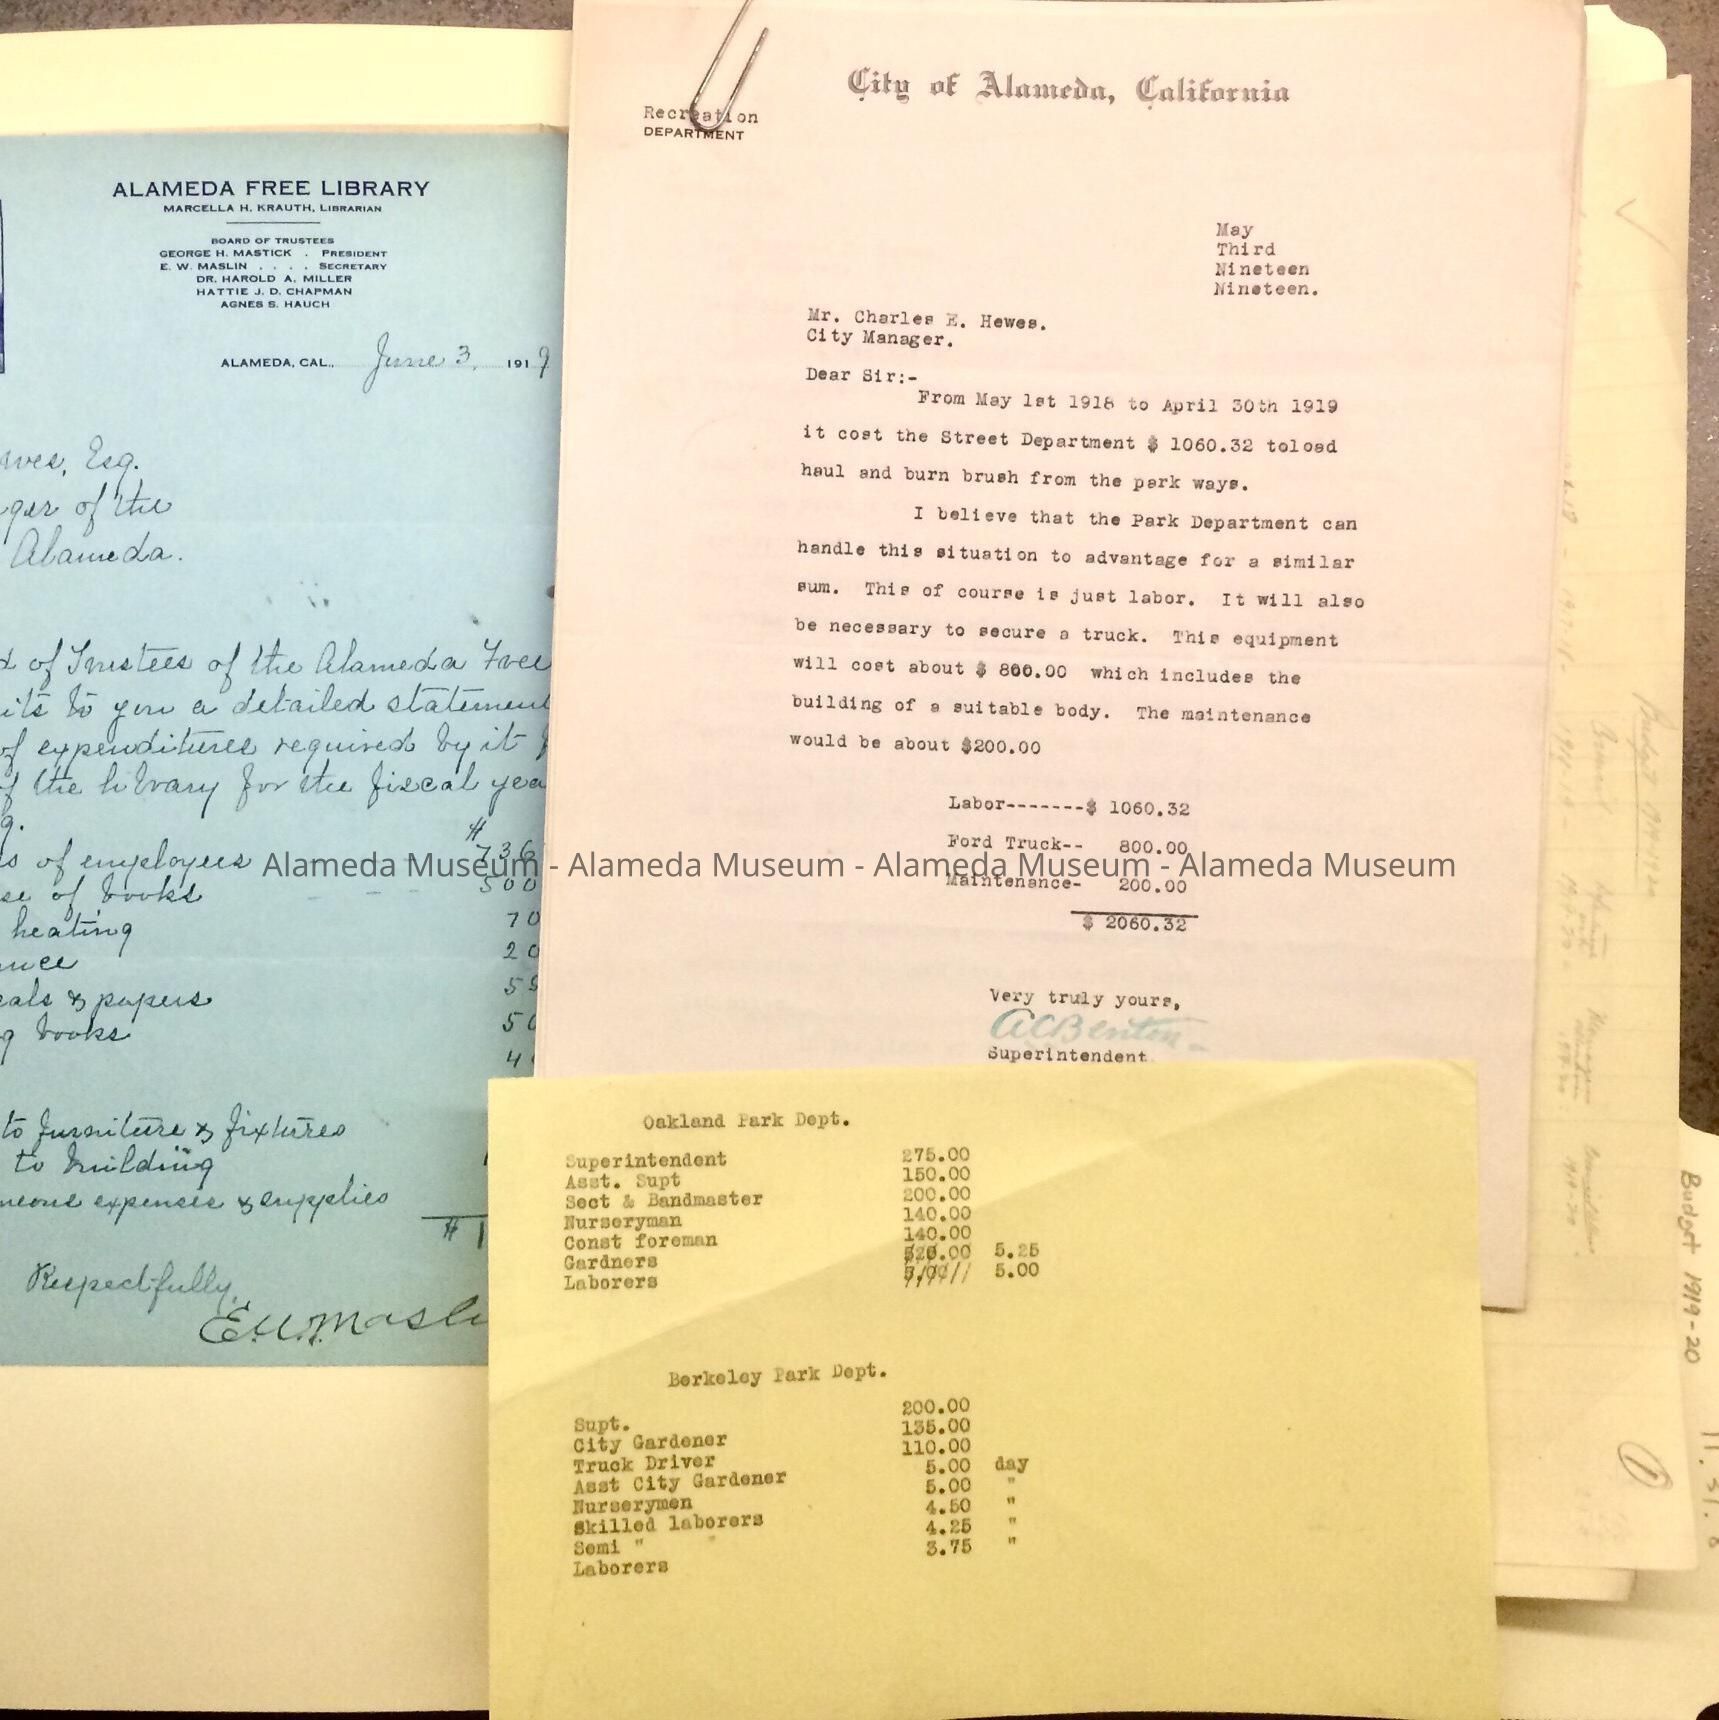 ALAMEDA FREE LIBRARY
MARCELLA H. KRAUTH, LIBRARIAN
BOARD OF TRUSTEES
GEORGE H. MASTICK . PRESIDENT
E. W. MASLIN . . . . SECRETARY
DR. HAROLD A. MILLER
HATTIE J. D. CHAPMAN
AGNES S. HAUCH
ALAMEDA, CAL., June 3, 1919
Esq.
of the
Alameda.
of Trustees of the Alameda Free
to you a detailed statement
of expenditures required by it
the library for the fiscal
of employees $ 736
of books 500
heating 70
20
& papers 55
books 50
4
to furniture & fixtures
to building
expenses & supplies
$ 1
Respectfully,
City of Alameda, California
Recreation
DEPARTMENT
May
Third
Nineteen
Nineteen.
Mr. Charles E. Hewes.
City Manager.
Dear Sir:-
From May 1st 1918 to April 30th 1919
it cost the Street Department $ 1060.32 toload
haul and burn brush from the park ways.
I believe that the Park Department can
handle this situation to advantage for a similar
sum. This of course is just labor. It will also
be necessary to secure a truck. This equipment
will cost about $ 800.00 which includes the
building of a suitable body. The maintenance
would be about $200.00
Labor-------$ 1060.32
Ford Truck-- 800.00
Maintenance- 200.00
$ 2060.32
Very truly yours,
ACBenton
Superintendent
Oakland Park Dept.
Superintendent 275.00
Asst. Supt 150.00
Sect & Bandmaster 200.00
Nurseryman 140.00
Const foreman 140.00
Gardners 5.25
Laborers 5.00
Berkeley Park Dept.
Supt. 200.00
City Gardener 135.00
Truck Driver 110.00
Asst City Gardener 5.00 day
Nurserymen 5.00 "
Skilled laborers 4.50 "
Semi " " 4.25 "
Laborers 3.75 "
Budget 1919-20
Budget 1919-20
Alameda Museum - Alameda Museum - Alameda Museum - Alameda Museum